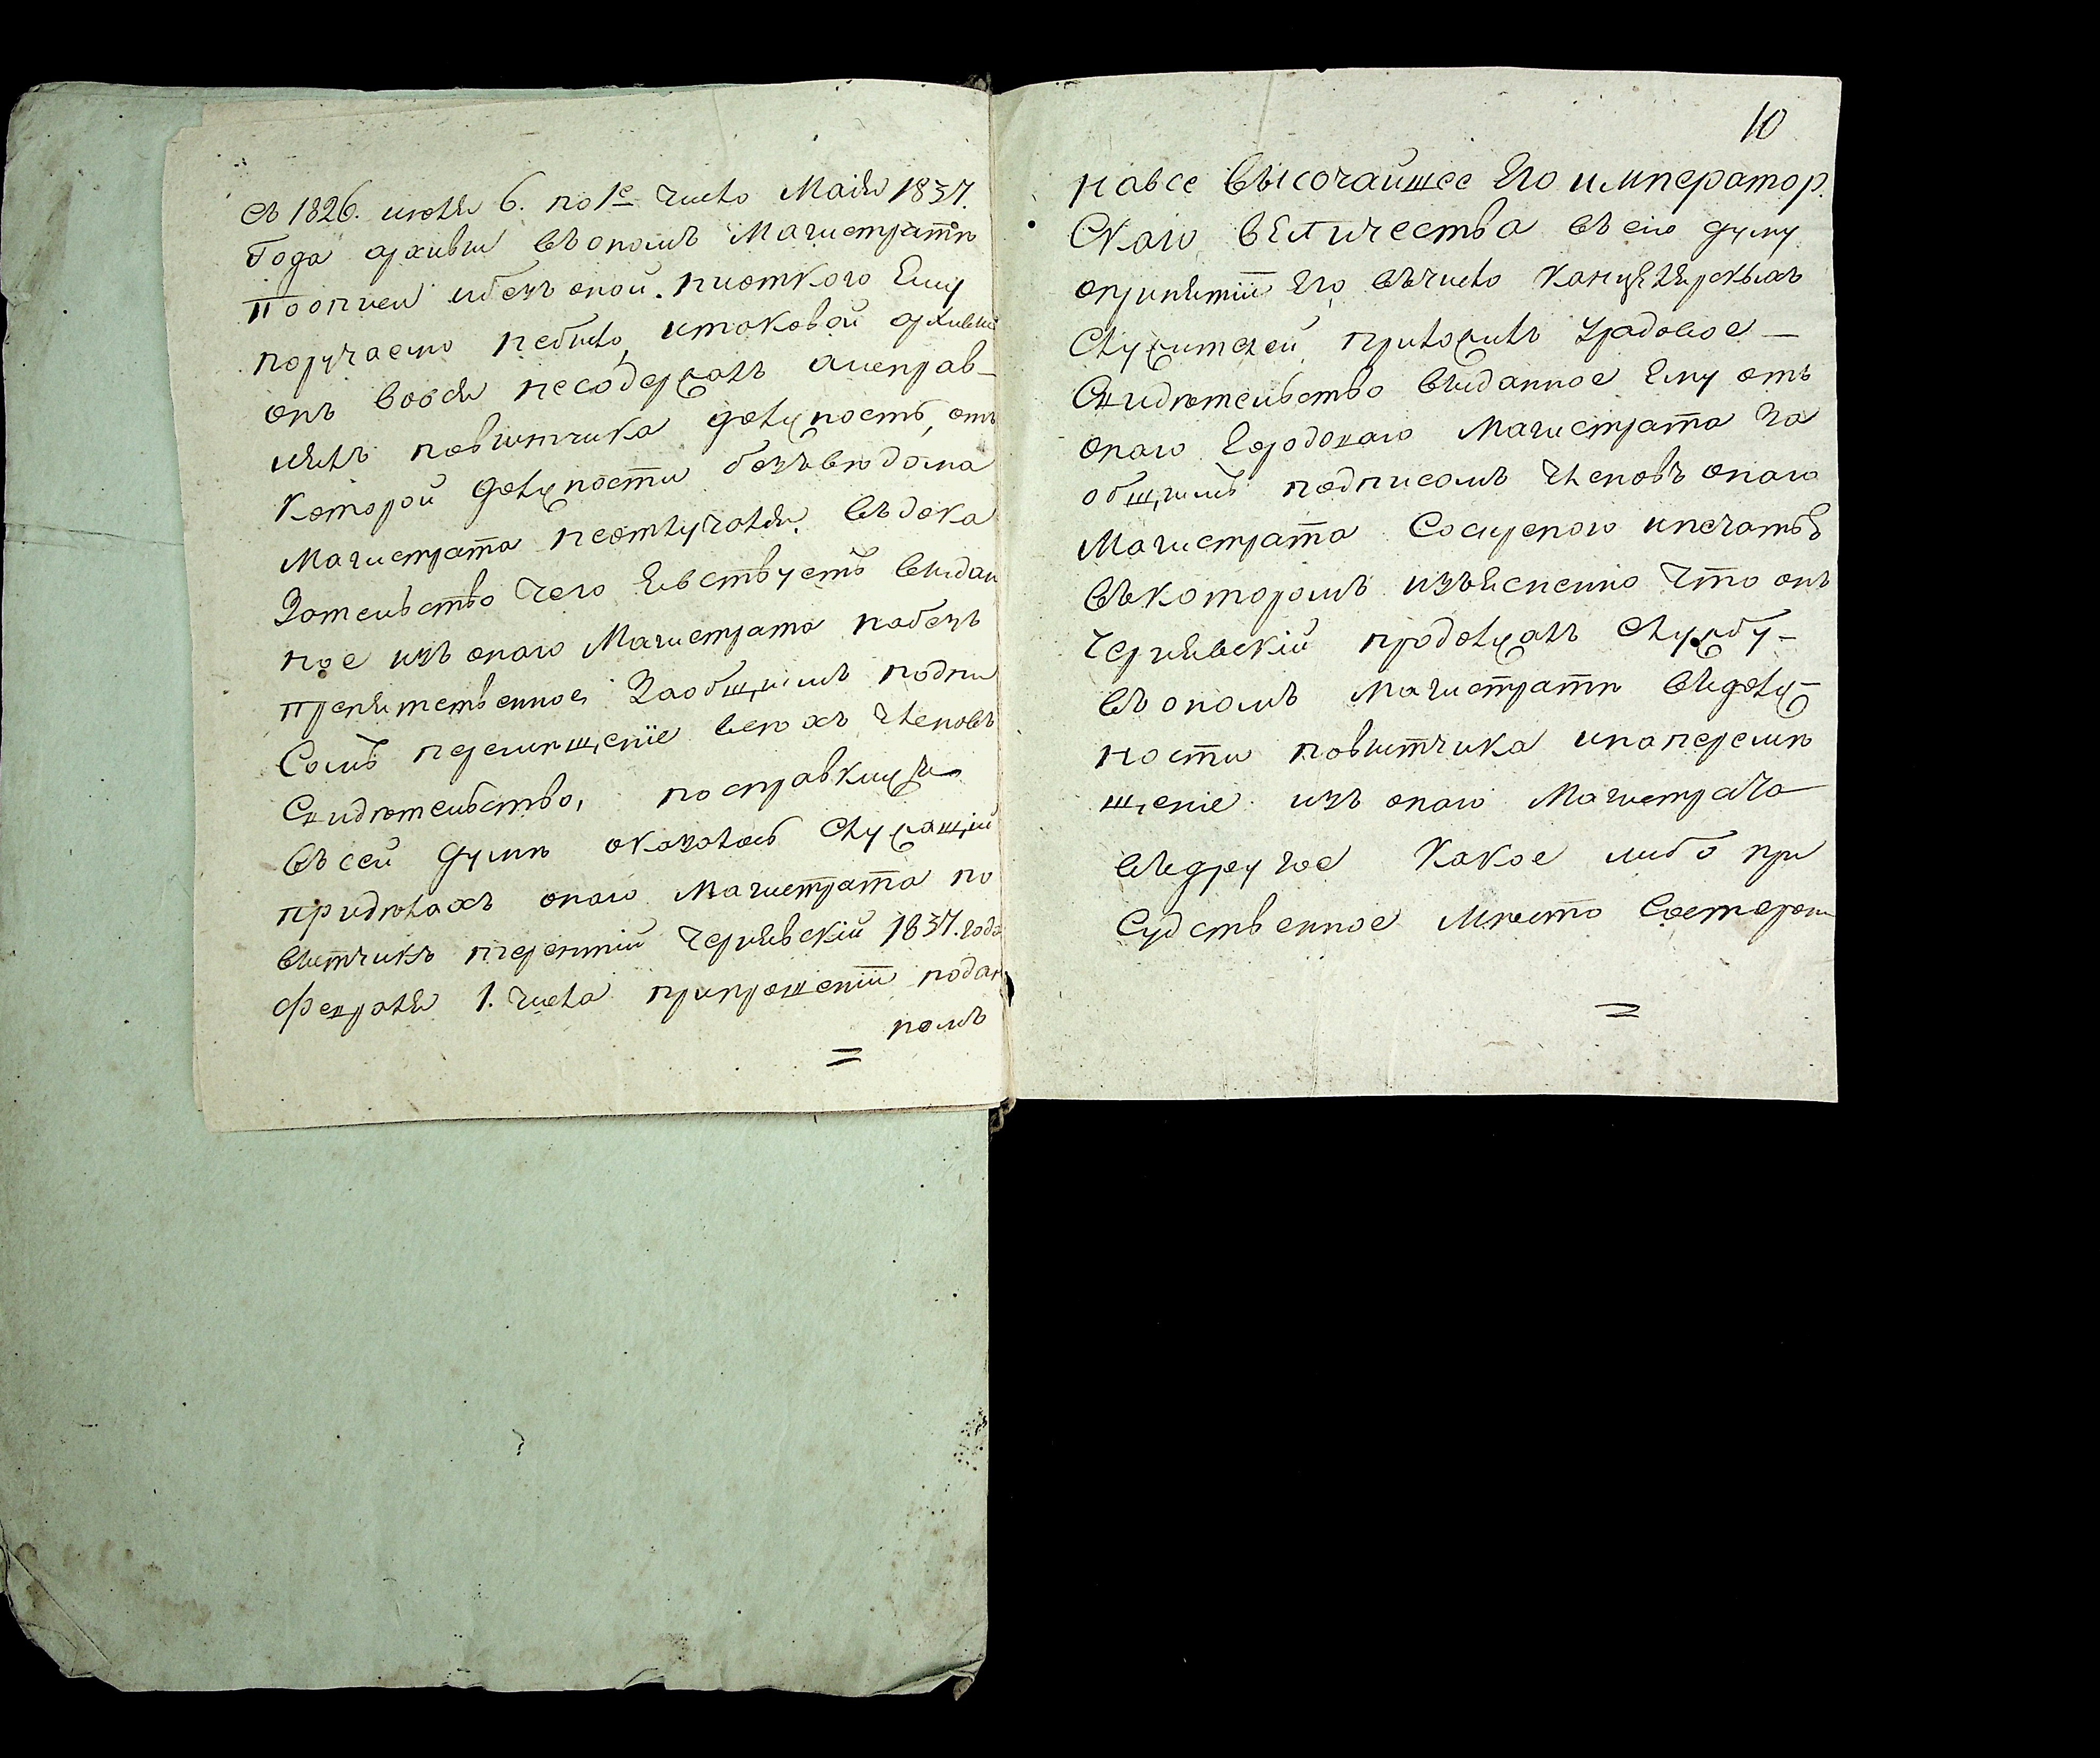 съ 1826. июля 6. по 1е число Маия 1837.
Года архивы въ ономъ Магистратѣ
по описи ибезъ оной. ниоткого Ему
поручаемо небыло, итаковой архивы
онъ вовся несодержалъ аисправ-
лялъ повытчика должность, отъ
которой должности безъвѣдома
Магистрата неотлучался. въ дока
зательство чего явствуетъ выдан
ное изъ онаго Магистрата набезъ
препятственное заобщимъ подпи
сомъ перемѣщение всѣхъ членовъ
свидѣтельство, посправки жъ
въ сей думѣ оказалось служащий
придѣлахъ онаго Магистрата по
вытчикъ Чернявский 1837. года
февраля 1. числа припрошении подан
номъ
10
навсе высочайшее Его император.
скаго величества въ сию думу
опринятии Его въчисло канцелярскихъ
служителей приложилъ градовое –
свидѣтельство выданное Ему отъ
онаго городоваго Магистрата за
общимъ подписомъ членовъ онаго
Магистрата ипечатью
въкоторомъ изъяснено что онъ
Чернявский продолжалъ службу –
въ ономъ Магистратѣ вдолж-
ности повытчика инаперемѣ
щение изъ онаго Магистрата
вдругое какое либо при
судственное мѣсто состороны